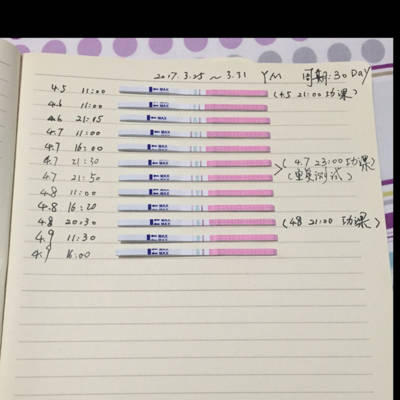 2017.3.25 ~ 3.31 YM 周期:30 Day
4.5 11:00 (4.5 21:00 功课)
4.6 11:00
4.6 21:15
4.7 11:00
4.7 16:00
4.7 21:30 (4.7 23:00 功课)
4.7 21:50 (重复测试)
4.8 11:00
4.8 16:20
4.8 20:30 (4.8 21:00 功课)
4.9 11:30
4.9 16:00